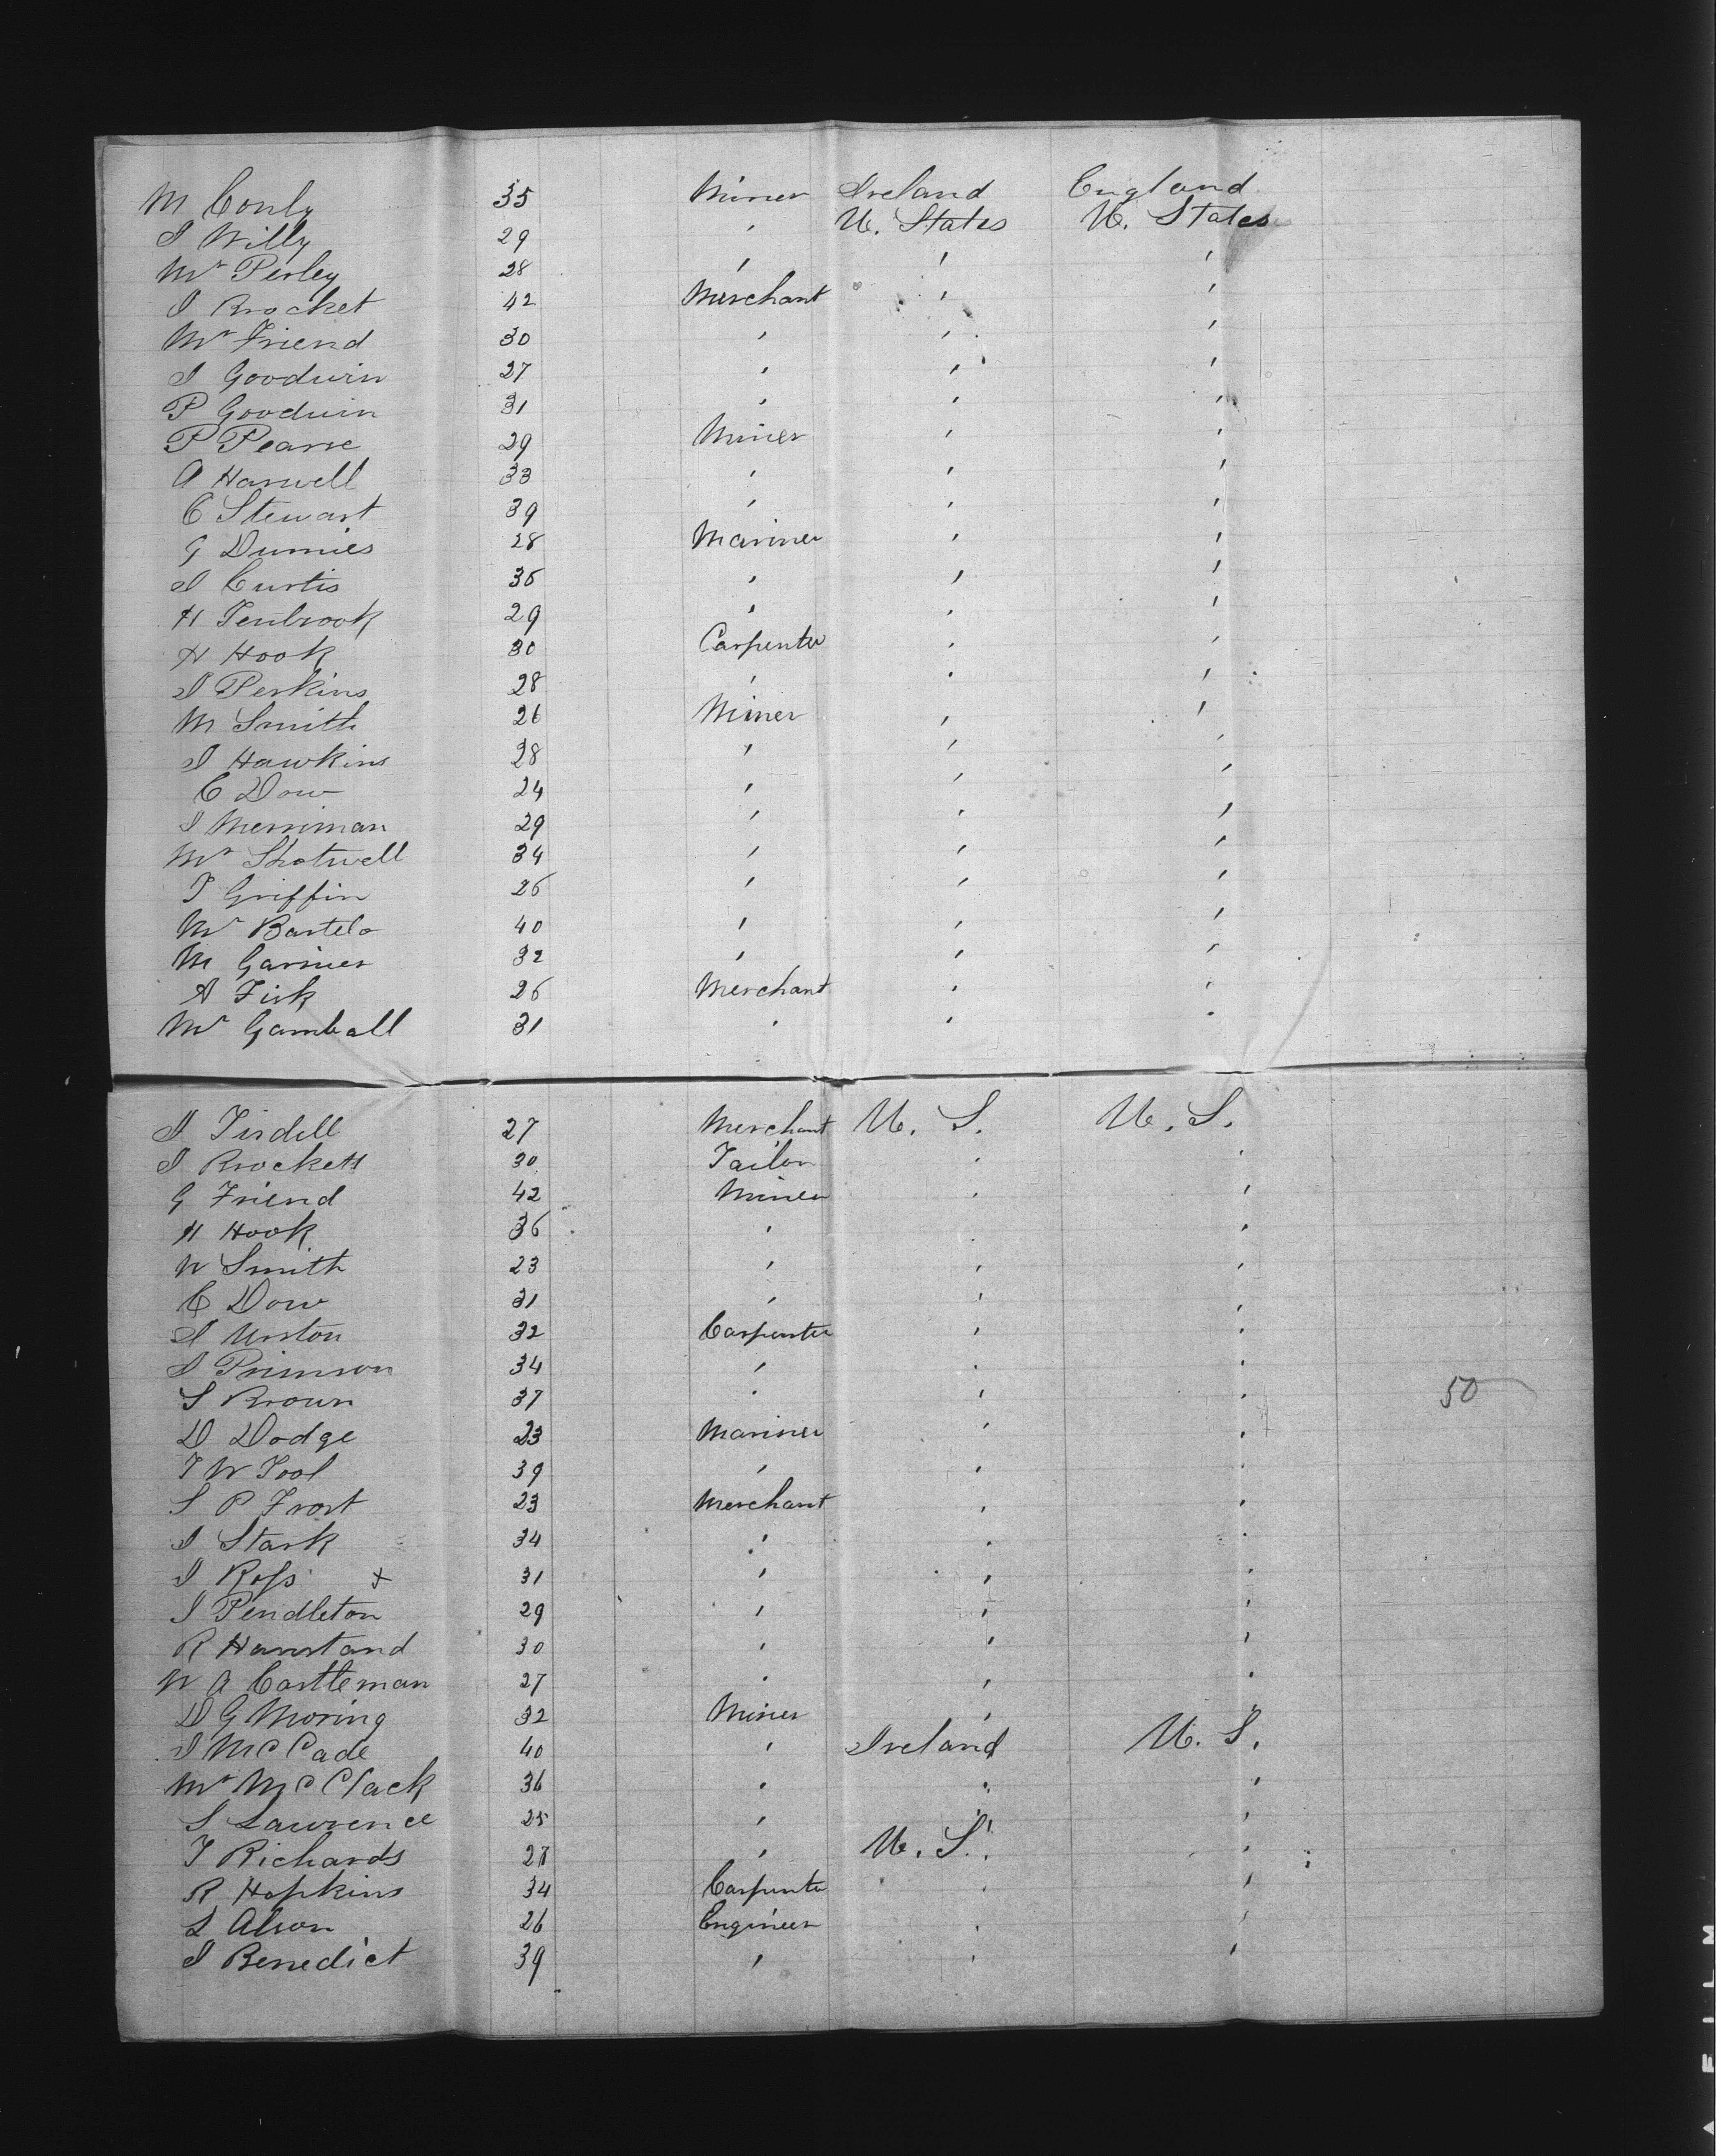 M Conly 35 Miner Ireland England
J Willy 29 ' U. States U. States
Mr Perley 28 ' ' '
J Brocket 42 Merchant ' '
Mr Friend 30 ' ' '
J Goodwin 27 ' ' '
P Goodwin 31 ' ' '
P Pearse 29 Miner ' '
A Harwell 33 ' ' '
C Stewart 39 ' ' '
G Dumies 28 Mariner ' '
J Curtis 36 ' ' '
H Tenbrook 29 ' ' '
H Hook 30 Carpenter ' '
J Perkins 28 ' ' '
M Smith 26 Miner ' '
J Hawkins 28 ' ' '
C Dow 24 ' ' '
J Merriman 29 ' ' '
Mr Shotwell 34 ' ' '
T Griffin 26 ' ' '
Mr Bartelo 40 ' ' '
M Garnier 32 ' ' '
A Fisk 26 Merchant ' '
Mr Gamball 31 ' ' '
J Tisdell 27 Merchant U. S. U. S.
J Brockett 30 Tailor ' '
G Friend 42 Miner ' '
H Hook 36 ' ' '
W Smith 23 ' ' '
C Dow 31 ' ' '
J Urston 32 Carpenter ' '
J Primson 34 ' ' '
S Brown 37 ' ' ' 50
D Dodge 23 Mariner ' '
T W Tool 39 ' ' '
S P Frost 23 Merchant ' '
J Stark 34 ' ' '
J Ross x 31 ' ' '
J Pendleton 29 ' ' '
R Hanstand 30 ' ' '
W A Castleman 27 ' ' '
D G Moring 32 Miner ' '
J McCade 40 ' Ireland U. S.
Mr McClack 36 ' ' '
S Lawrence 25 ' ' '
T Richards 28 ' U. S. '
R Hopkins 34 Carpenter ' '
L Alson 26 Engineer ' '
J Benedict 39 ' ' '